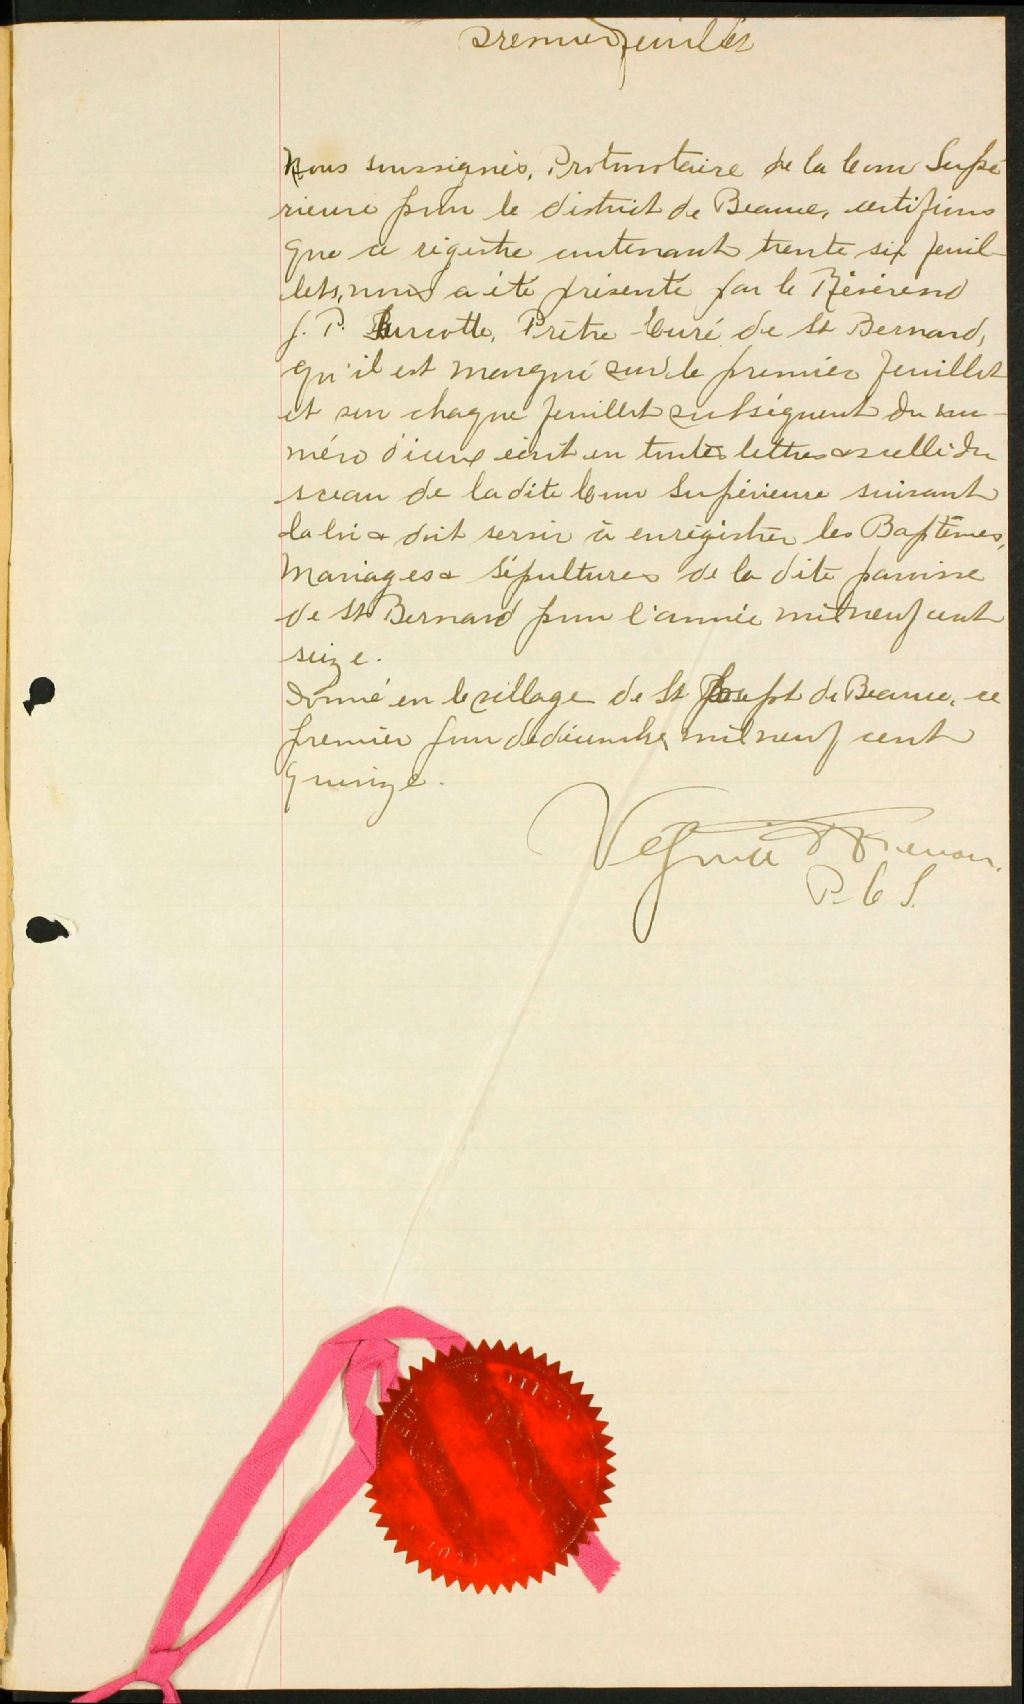 Premier feuillet
Nous soussignés, Protonotaire de la Cour Supé
rieure pour le district de Beauce, certifions
que ce régistre contenant trente six feuil-
lets, nous a été présenté par le Révérend
J. P. Turcotte, Prêtre Curé de St Bernard,
qu'il est marqué sur le premier feuillet
et sur chaque feuillet subséquent du nu-
méro d'iceux écrit en toutes lettres & scellé du
sceau de la dite Cour Supérieure suivant
la loi & doit servir à enrégistrer les Baptêmes,
Mariages & Sépultures de la dite paroisse
de St Bernard pour l'année mil neuf cent
seize.
Donné en le village de St Joseph de Beauce, ce
premier jour de décembre mil neuf cent
quinze.
P. C. S.